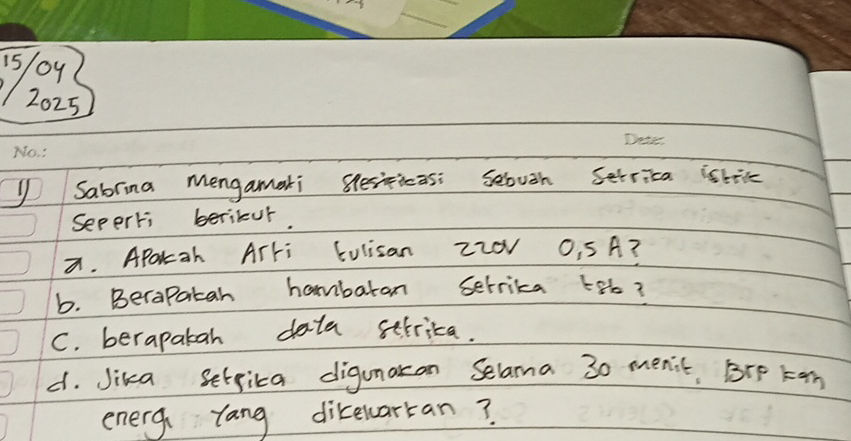 15/04
2025
No.:
Date:
1) Sabrina Mengamati spesifikasi sebuah setrika istrik
seperti berikut.
a. Apakah Arti tulisan 220V 0,5 A?
b. Berapakah hambatan setrika tsb?
c. berapakah data setrika.
d. Jika setrika digunakan selama 30 menit, Brp kah
energi yang dikeluarkan?